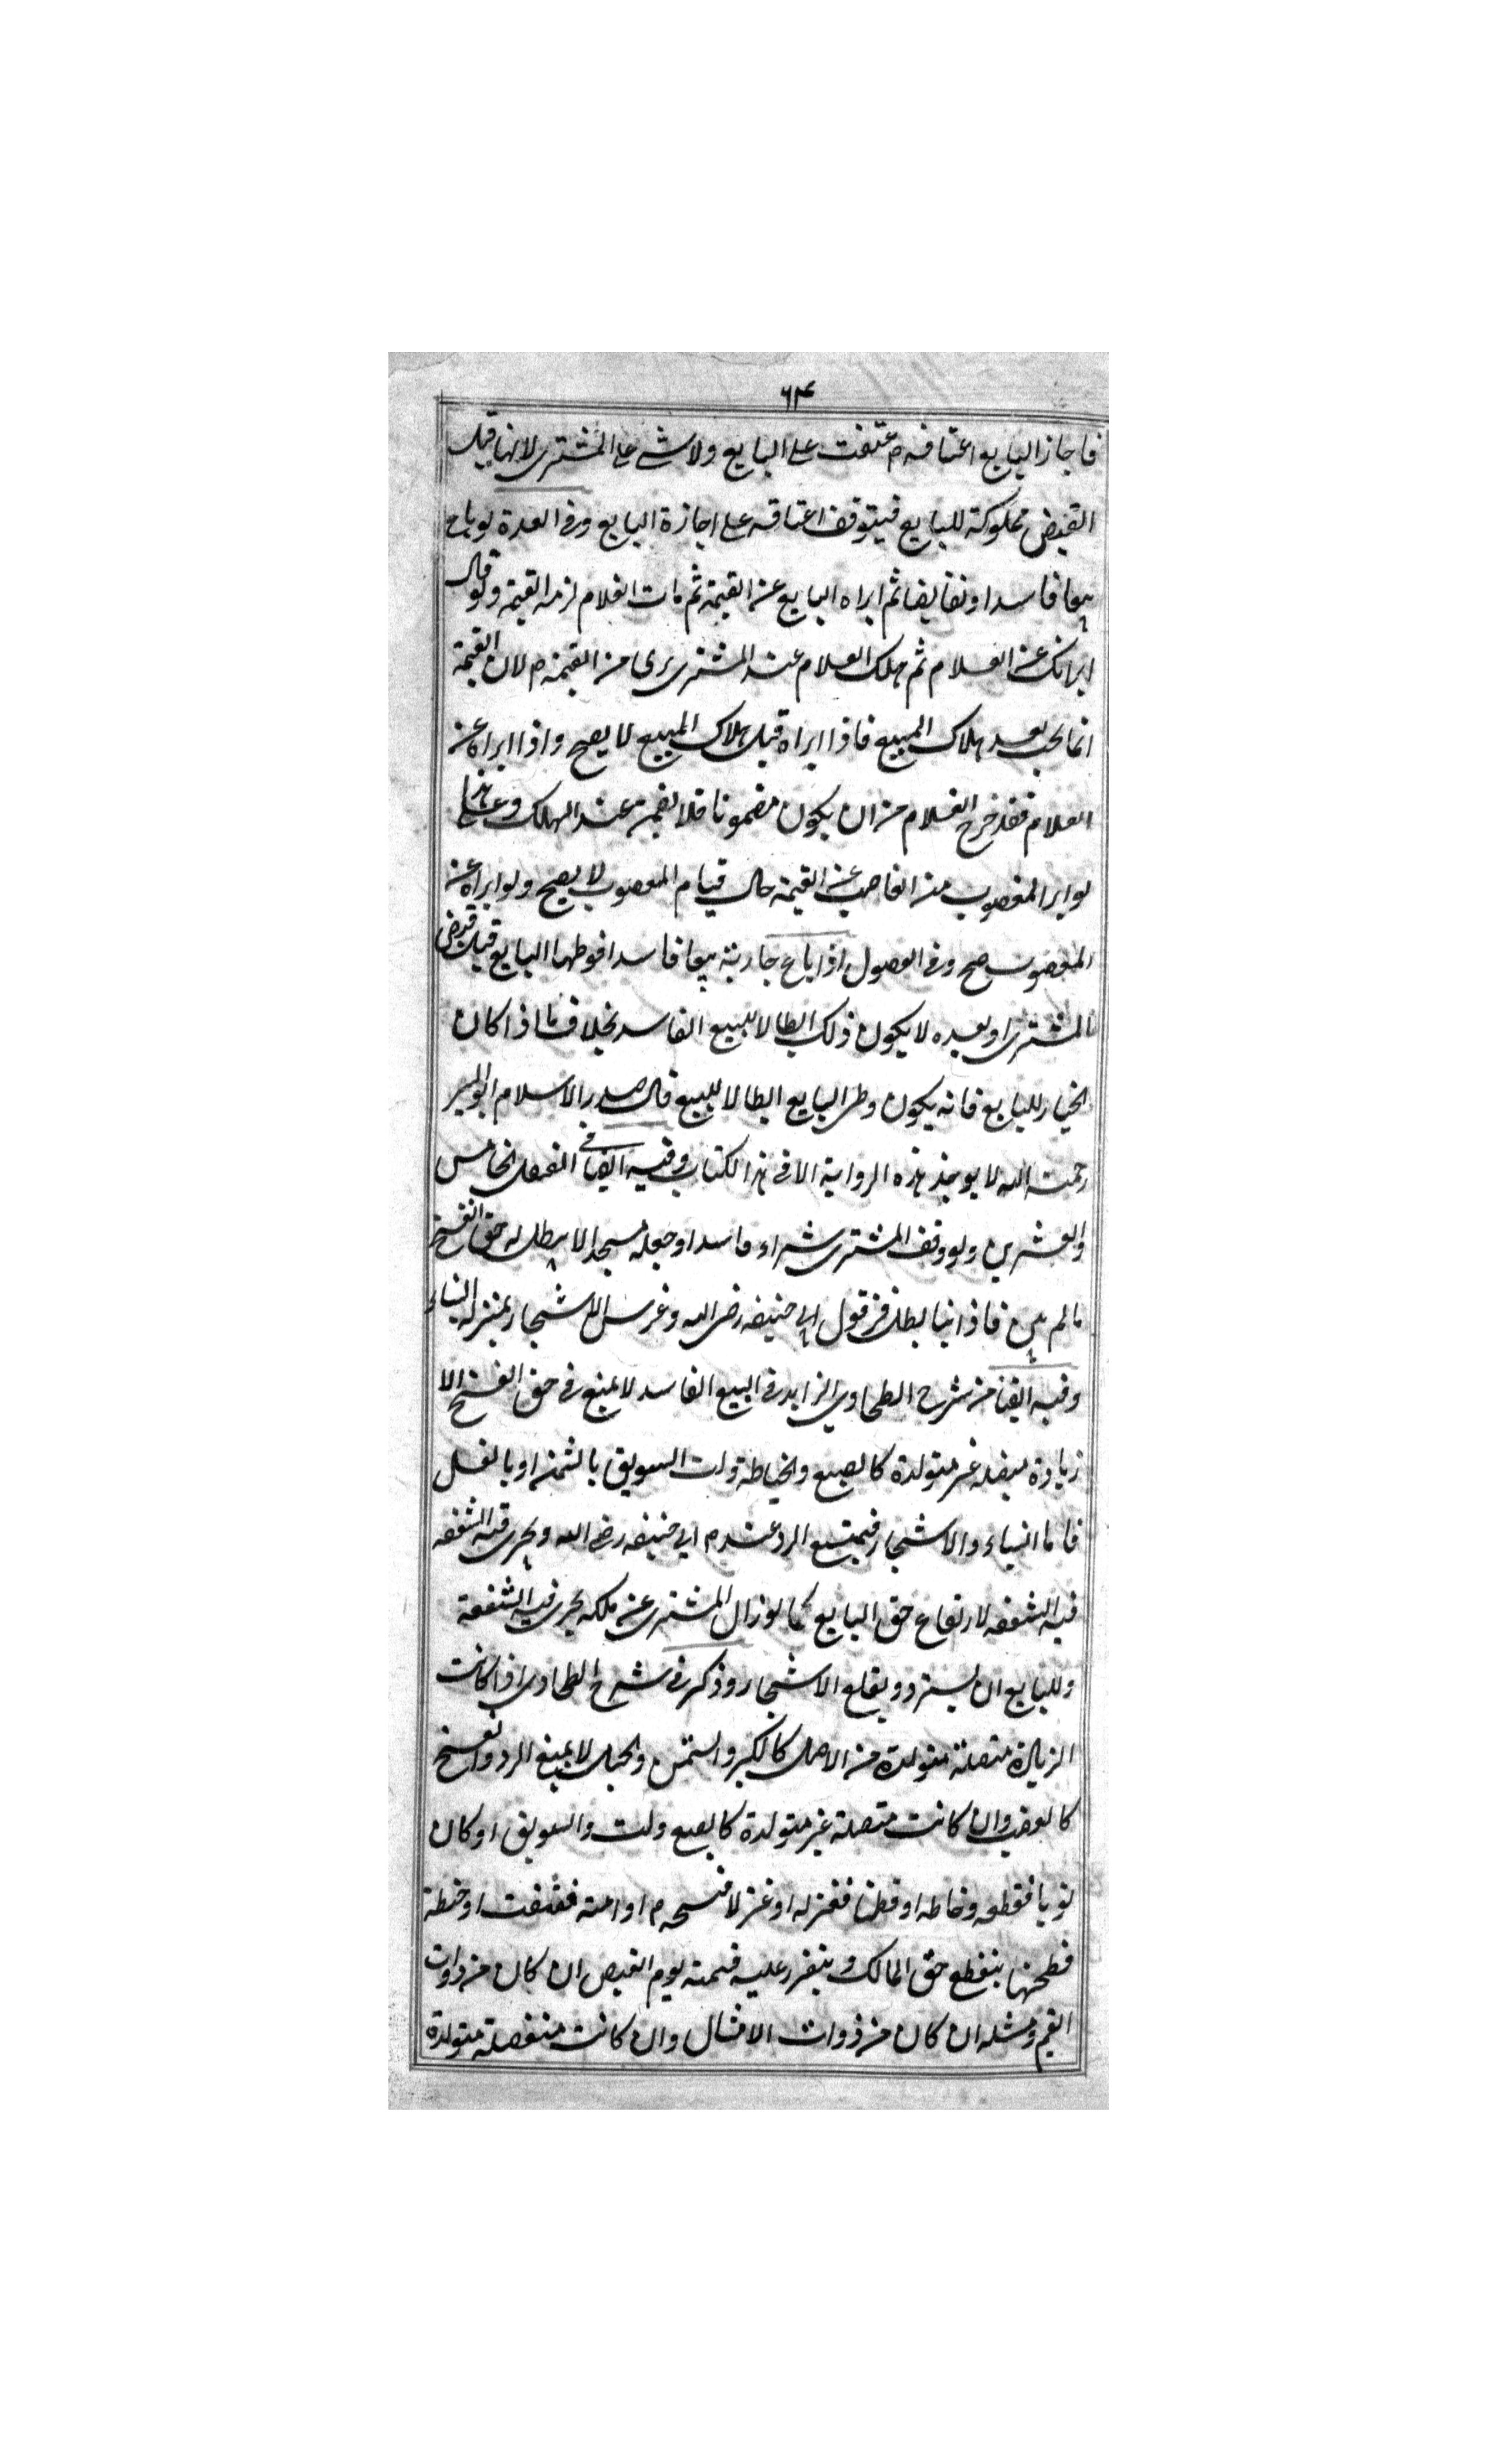 ٦٤
فاجاز البايع اعتاقه م عتقت على البايع ولا شى على المشترى لانها قبل
القبض مملوكة للبايع فيتوقف اعتاقه على اجازة البايع وفى العدة لو باع
بيعا فاسدا وتقابضا ثم ابراه البايع عن القيمة ثم مات الغلام لزمه القيمة ولو قال
ابراتك عن الغلام ثم هلك الغلام عند المشترى برى من القيمة م لان القيمة
انما يجب بعد هلاك المبيع فاذا ابراه قبل هلاك المبيع لا يصح واذا ابراه عن
الغلام فقد خرج الغلام من ان يكون مضمونا فلا يضمن عند الهلاك وعلى هذا
لو ابرا المغصوب منه الغاصب عن القيمة حال قيام المغصوب لا يصح ولو ابراه عن
المغصوب صح وفى الفصول اذا باع جارية بيعا فاسدا فوطها البايع قبل قبض
المشترى او بعده لا يكون ذلك ابطالا للبيع الفاسد بخلاف ما اذا كان
الخيار للبايع فانه يكون وطى البايع ابطالا للبيع قال صدر الاسلام ابو اليسر
رحمت الله لا يوجد هذه الرواية الا فى هذا الكتاب وفيه ايضا فى الفصل الخامس
والعشرين ولو وقف المشترى شراء فاسدا وجعله مسجدا لا يبطل له حق الفسخ
ما لم يبن فاذا بنا بطل فى قول ابى حنيفه رضى الله وغرس الاشجار بمنزله البناء
وفيه ايضا من شرح الطحاوى الزايد فى البيع الفاسد لا يمنع فى حق الفسخ الا
زيادة متصله غير متولدة كالصبغ والخياطة ولت السويق بالسمن او بالعسل
فاما البناء والاشجار فيمتنع الرد عندم ابى حنيفه رضى الله ويجرى فيه الشفعه
فيه الشفعه لارتفاع حق البايع كما لو زال المشترى عن ملكه يجرى فيه الشفعة
وللبايع ان يسترد ويقلع الاشجار وذكر فى شرح الطحاوى اذا كانت
الزيادة متصلة متولدة من الاصل كالكبر والسمن والحبل لا يمنع الرد والفسخ
كالغصب وان كانت متصلة غير متولدة كالصبغ ولت والسويق او كان
ثوبا فقطعه وخاطه او قطنا فغزله او غزلا فنسجه م او امته فعتقت او حنطة
فطحنها ينقطع حق المالك ويتقرر عليه قيمته يوم القبض ان كان من ذوات
القيم ومثله ان كان من ذوات الامثال وان كانت منفصلة متولدة